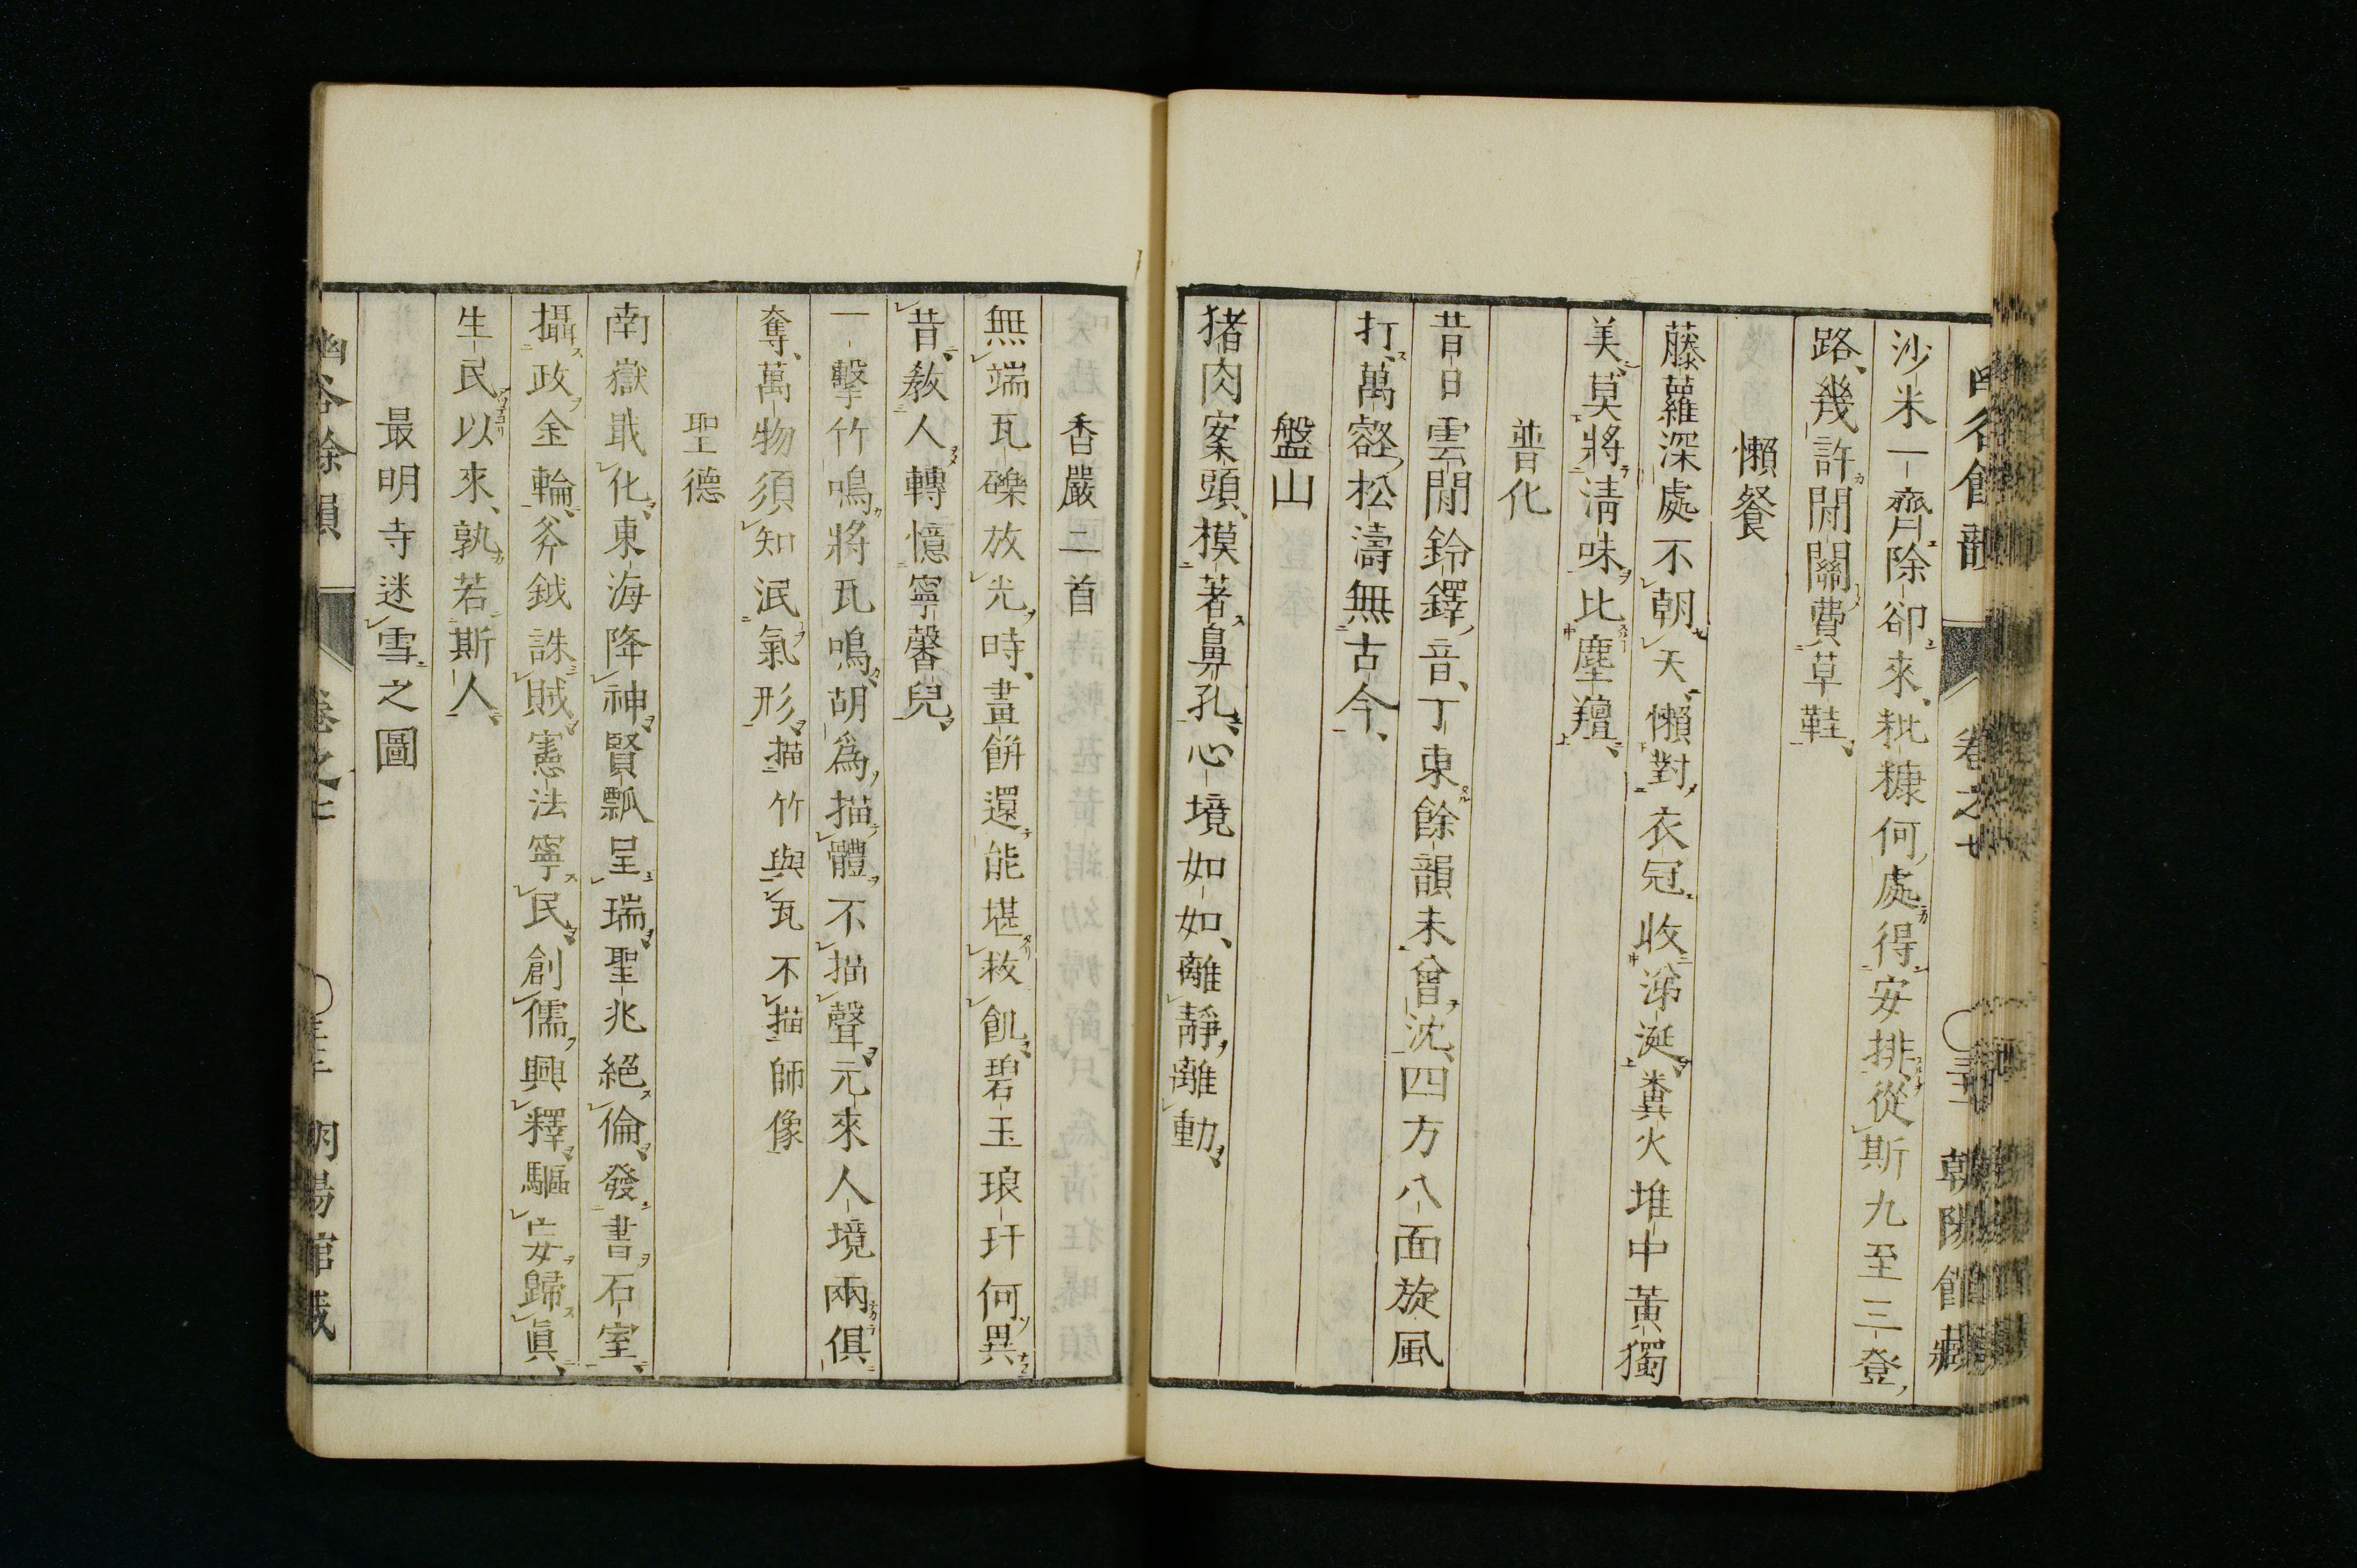 沙米一齊除卻來、粃糠何處得安排、從斯九至三登
路、幾許閒關費草鞋、
懶餐
藤蘿深處不朝天、懶對衣冠收涕涎、糞火堆中黃獨
美、莫將淸味比塵羶、
普化
昔日雲閒鈴鐸音、丁東餘韻未曾沈、四方八面旋風
打、萬壑松濤無古今、
盤山
猪肉案頭、模著鼻孔、心境如如、離靜離動、
香嚴一首
無端瓦礫放光時、畫餅還能堪救飢、碧玉琅玕何異
昔、敎人轉憶寧馨兒、
一擊竹鳴將瓦鳴、胡爲描體不描聲、元來人境兩俱
奪、萬物須知泯氣形、描竹與瓦不描師像
聖德
南嶽戢化、東海降神、賢瓢呈瑞、聖兆絕倫、發書石室、
攝政金輪、斧鉞誅賊、憲法寧民、創儒興釋、驅妄歸眞、
生民以來、孰若斯人、
最明寺迷雪之圖
餘韻 卷之七 朝陽館藏